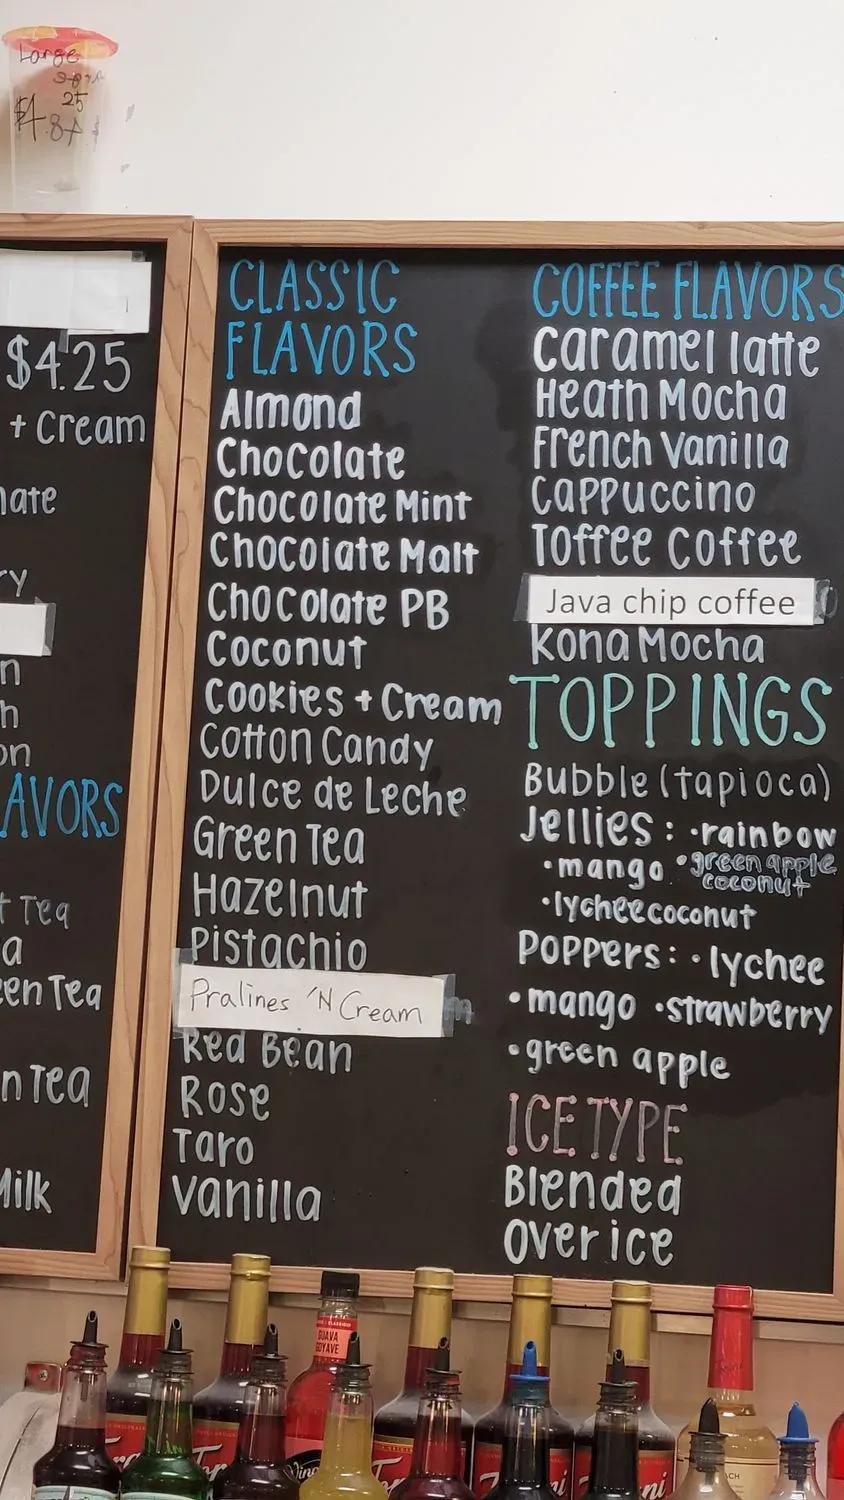 Large
$4.
25
$4.25
+ Cream
AVORS
Tea
een Tea
n Tea
Milk
CLASSIC
FLAVORS
Almond
Chocolate
Chocolate Mint
Chocolate Malt
Chocolate PB
Coconut
Cookies + Cream
Cotton Candy
Dulce de Leche
Green Tea
Hazelnut
Pistachio
Pralines 'N Cream
Red Bean
Rose
Taro
Vanilla
COFFEE FLAVORS
Caramel latte
Heath Mocha
French Vanilla
Cappuccino
Toffee Coffee
Java chip coffee
Kona Mocha
TOPPINGS
Bubble (tapioca)
Jellies: •rainbow
•mango •green apple
coconut
•lychee coconut
Poppers: •lychee
•mango •strawberry
•green apple
ICE TYPE
Blended
Over ice
GUAVA
GOYAVE